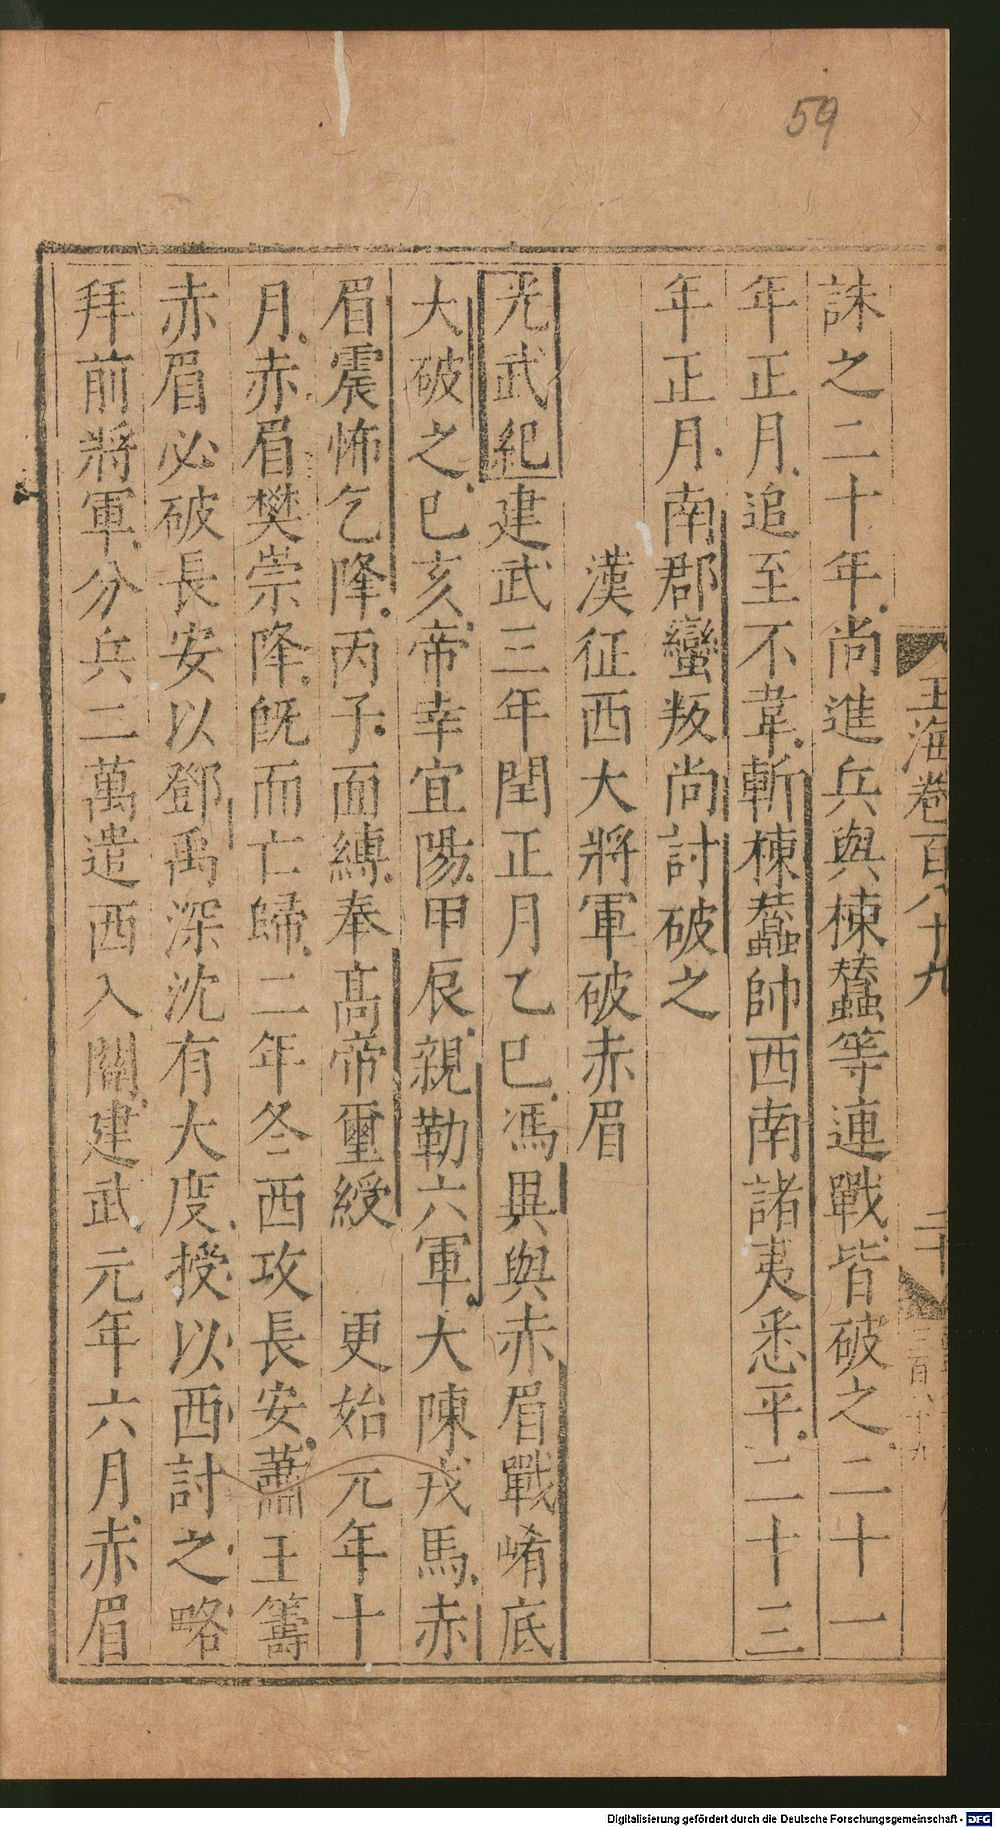 59
玉海卷百八十九
二十
三百八十九
誅之二十年尚進兵與棟蠶等連戰皆破之二十一
年正月追至不韋斬棟蠶帥西南諸夷悉平二十三
年正月南郡蠻叛尚討破之
漢征西大將軍破赤眉
光武紀建武三年閏正月乙巳馮異與赤眉戰崤底
大破之己亥帝幸宜陽甲辰親勒六軍大陳戎馬赤
眉震怖乞降丙子面縛奉高帝璽綬 更始元年十
月赤眉樊崇降既而亡歸二年冬西攻長安蕭王籌
赤眉必破長安以鄧禹深沈有大度授以西討之略
拜前將軍分兵二萬遣西入關建武元年六月赤眉
Digitalisierung gefördert durch die Deutsche Forschungsgemeinschaft - DFG